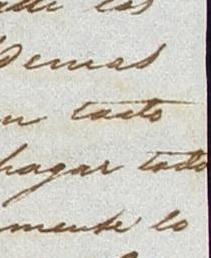 las
Demas
n tasto
hagar todo
mente lo